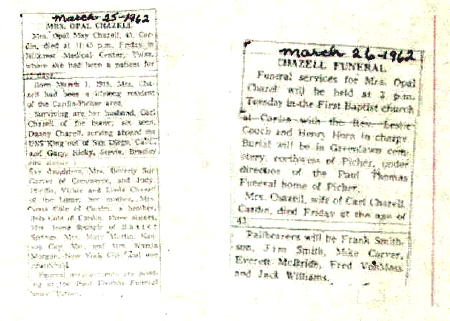 march 25-1962
MRS. OPAL CHAZELL
Mrs. Opal May Chazell, 43, Car-
din, died at 11:45 p.m. Friday in
Hillcrest Medical Center, Tulsa,
where she had been a patient for
12 days.
Born March 1, 1919, Mrs. Cha-
zell had been a lifelong resident
of the Cardin-Picher area.
Surviving are her husband, Carl
Chazell of the home; six sons,
Danny Chazell, serving aboard the
USS King out of San Diego, Calif.,
and Gary, Ricky, Stevie, Bradley
daughters, Mrs. Beverly
of Commerce, and Judy,
Vickie and Linda Chazell
of the home; her mother, Mrs.
of Cardin, a brother,
of Cardin, three sisters,
Mrs. Irene of Baxter
Springs, Mrs. Mary Martin,
and Mrs. Wanda
Morgan, New York City, and one
grandchild.
Funeral arrangements are pend-
ing at the Paul Thomas Funeral
march 26-1962
CHAZELL FUNERAL
Funeral services for Mrs. Opal
Chazell will be held at 2 p.m.
Tuesday in the First Baptist church
at Cardin with the Rev. Leslie
Couch and Henry Horn in charge.
Burial will be in Greenlawn cem-
etery, northwest of Picher, under
direction of the Paul Thomas
Funeral home of Picher.
Mrs. Chazell, wife of Carl Chazell,
Cardin, died Friday at the age of
43.
Pallbearers will be Frank Smith-
son, Jim Smith, Mike Carver,
Everett McBride, Fred VonMoss
and Jack Williams.